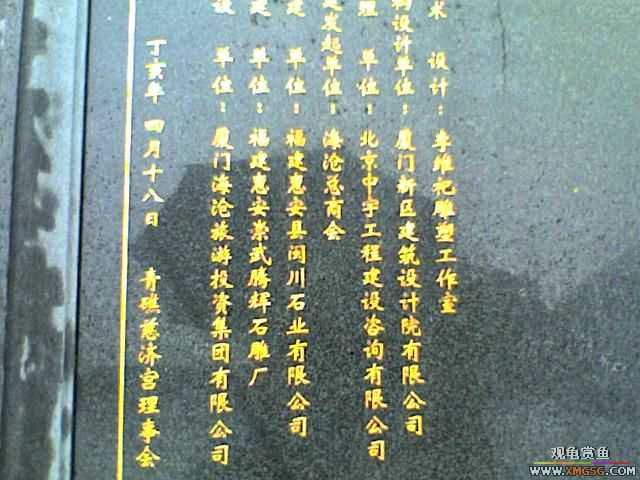 术 设计：李维祀雕塑工作室
构设计单位：厦门新区建筑设计院有限公司
理 单位：北京中宇工程建设咨询有限公司
建发起单位：海沧总商会
建 单位：福建惠安县闽川石业有限公司
建 单位：福建惠安崇武腾辉石雕厂
设 单位：厦门海沧旅游投资集团有限公司
丁亥年 四月十八日 青礁慈济宫理事会
观龟赏鱼
WWW.XMGSG.COM